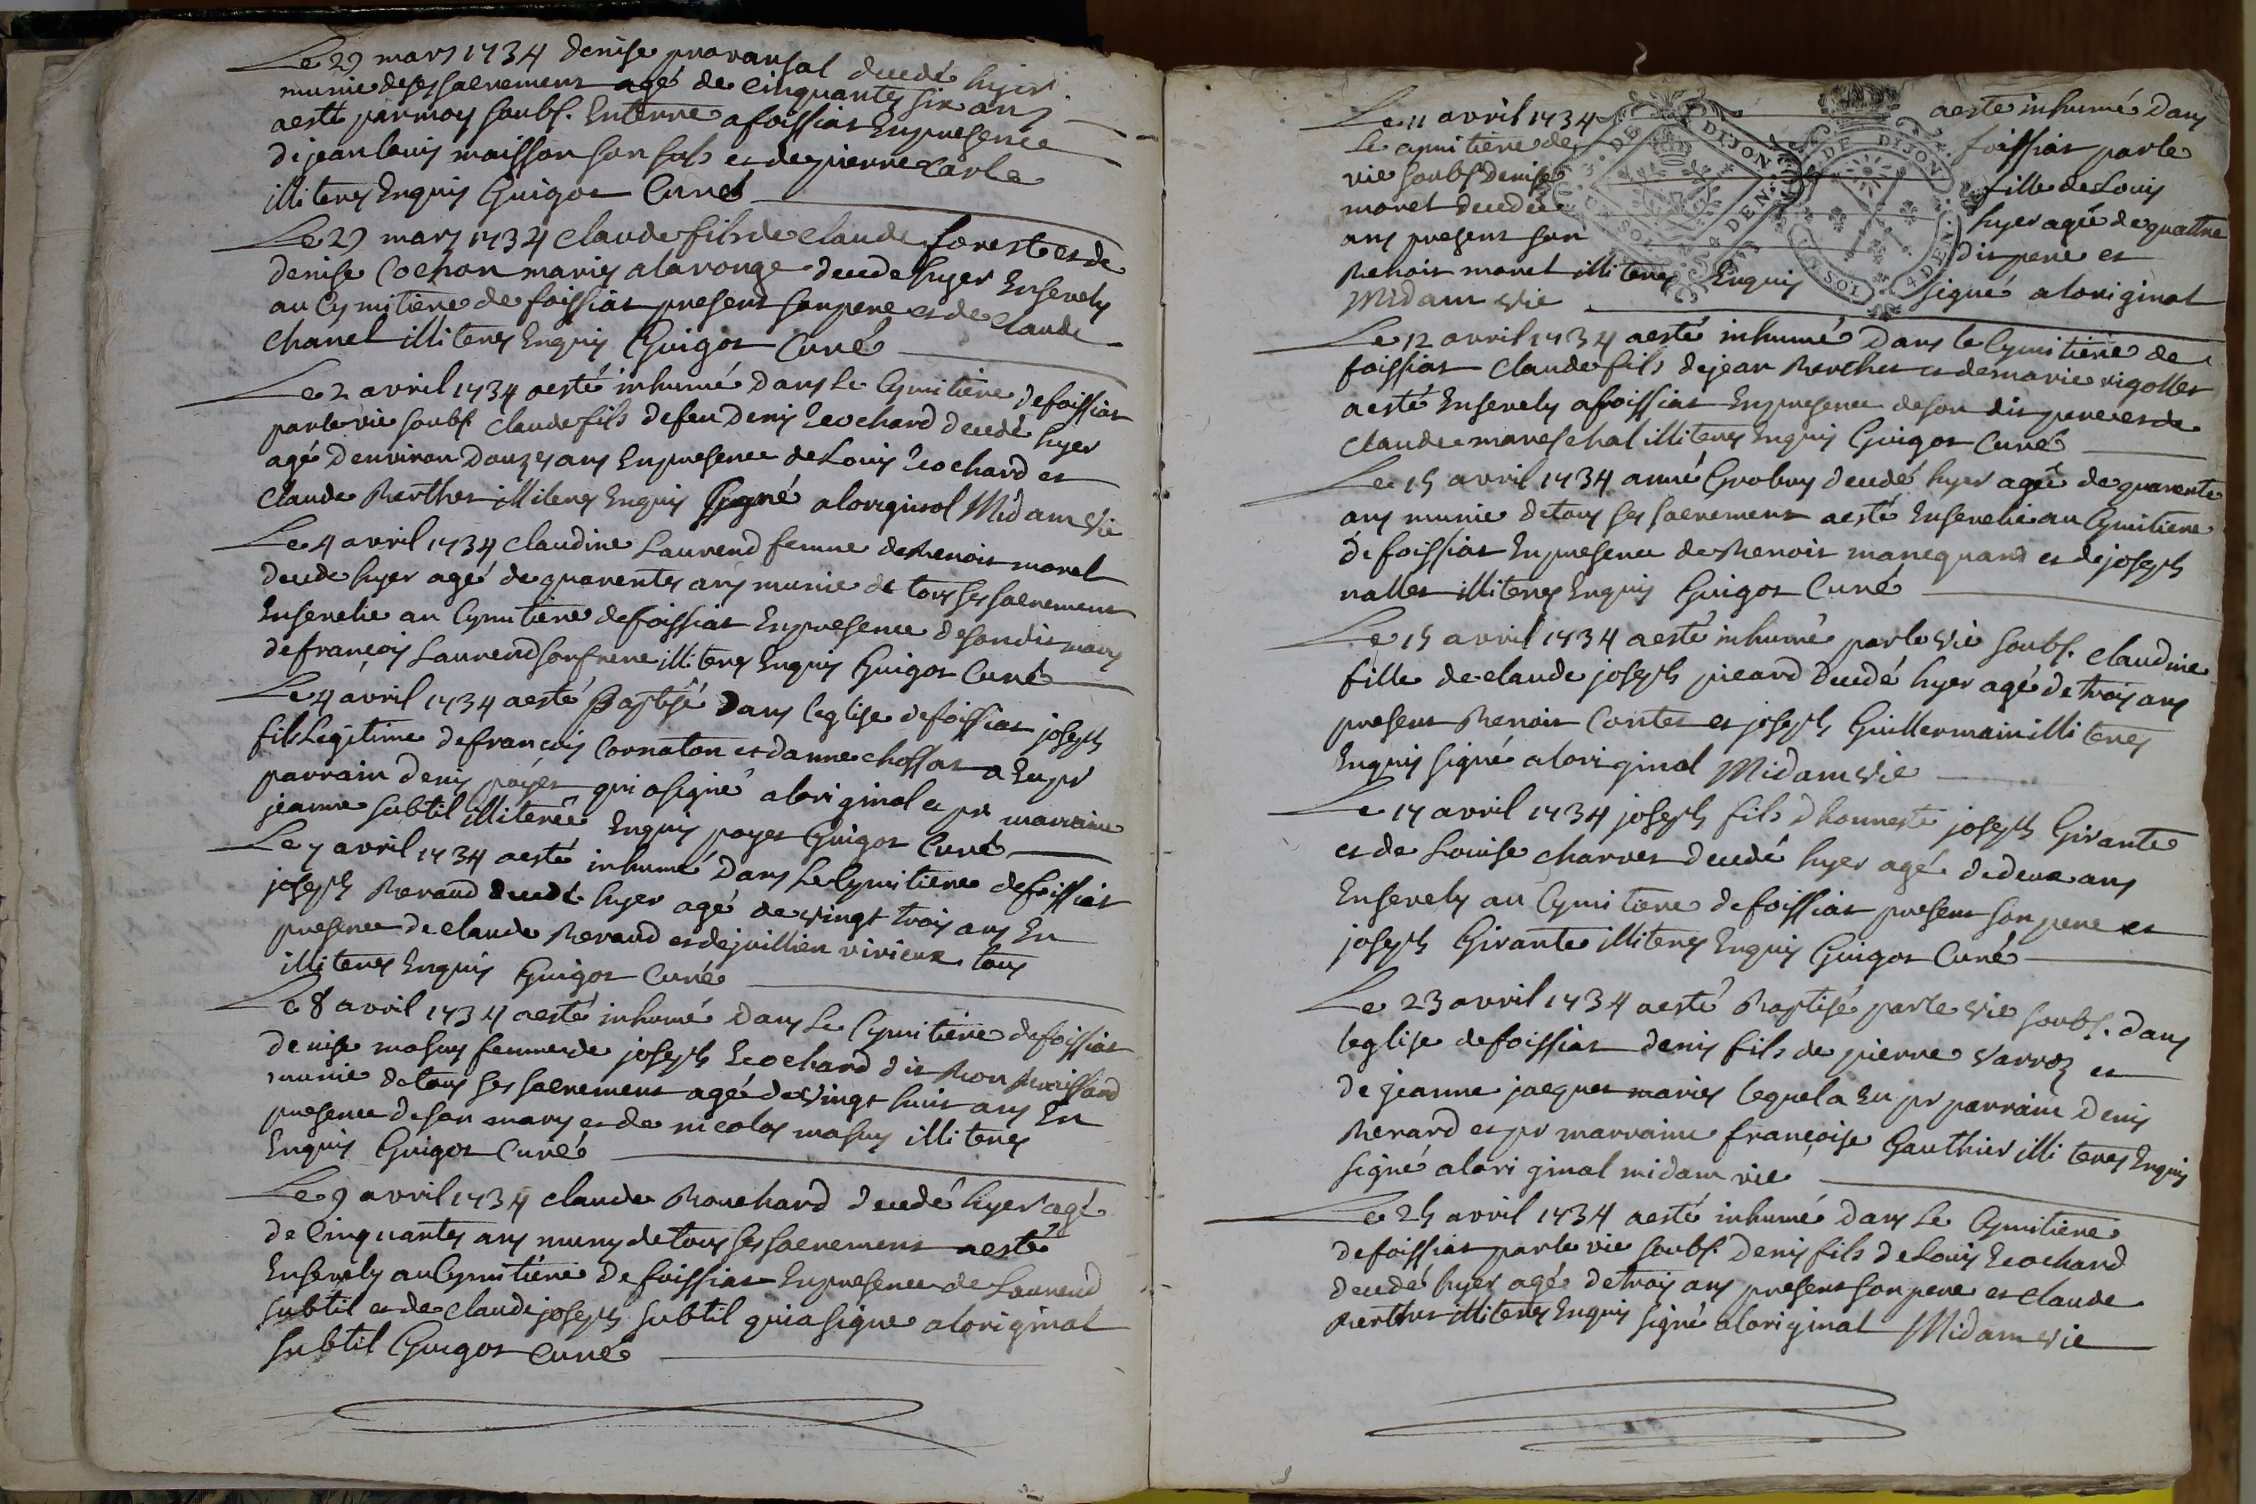 Le 27 mars 1734 denise provansal decedé hyer
munie deses sacrement agé de cinquantes six ans
aesté parmoy soubs. Enterré afoissiat Enpresence
de jean louis moisson son fils et de pierre carle
illiterés Enquis Guigot Curé
Le 27 mars 1734 claude fils de claude forest et de
denise Cochon mariés alaronge decede hyer Ensevely
au Cymitiere de foissiat present son pere et de claude
chanel illiterés Enquis Guigot Curé
Le 2 avril 1734 aesté inhumé Dans Le Cymitiere defoissiat
parle vié soubs. claude fils defeu Denis Ecochard decedé hyer
agé Denviron Douzes ans Enpresence de Louis Ecochard et
claude Berthet illiterés Enquis Signé aloriginal Midam Vié
Le 4 avril 1734 claudine Laurend femme deBenoit morel
decede hyer agé de quarentes ans munie de tous ses sacrement
Ensevelie au Cymitiere defoissiat Enpresence desondit mary
defrançois Laurend son frere illiterés Enquis Guigot Curé
Le 4 avril 1734 aesté Baptisé Dans leglise defoissiat joseph
fils Legitime defrançois Cornaton et danne chossat a Eu pr
parrain denis poyet qui asigné aloriginal et pr marraine
jeanne subtil illiterée Enquis poyet Guigot Curé
Le 7 avril 1734 aesté inhumé Dans Le Cymitiere defoissiat
joseph Beraud decedé hyer agé de vingt trois ans En
presence de claude Beraud et dejuillien virieux tous
illiterés Enquis Guigot Curé
Le 8 avril 1734 aesté inhumé Dans Le Cymitiere defoissiat
denise mosuy femmede joseph Ecochard dit Bon
munie detous ses sacrement agé de vingt huit ans En
presence de son mary et de nicolas mosuy illiterés
Enquis Guigot Curé
Le 9 avril 1734 claude Bouchard decedé hyer agé
de Cinquantes ans muny detous ses sacrement aesté
Ensevely auCymitiere de foissiat Enpresence de Laurend
subtil et de claude joseph subtil quiasigne aloriginal
subtil Guigot curé
Le 11 avril 1734 aesté inhumé Dans
Le cymitiere de foissiat parle
vié soubs Denise fille de Louis
morel decedée hyer agée de quattre
ans present son dit pere et
Benoit morel illiterés Enquis signé aloriginal
Midam vié
Le 12 avril 1734 aesté inhumé Dans le Cymitiere de
foissiat claude fils dejean Berthet et demarie rigollet
aesté Ensevely afoissiat Enpresence de son dit pere et de
claude mareschal illiterés Enquis Guigot Curé
Le 15 avril 1734 anne Grobuy decedé hyer agée de quarente
ans munie detous ses sacrement aesté Ensevelie au Cymitiere
de foissiat Enpresence de Benoit manequand et de joseph
nallet illiterés Enquis Guigot Curé
Le 15 avril 1734 aesté inhumé parle vié soubs. claudine
fille de claude joseph picard Decedé hyer agé de trois ans
present Benoit Contet et joseph Guillermain illiterés
Enquis signé aloriginal Midam vié
Le 17 avril 1734 joseph fils dhonneste joseph Girante
et de Louise charvet decedé hyer agé de deux ans
Ensevely au Cymitiere defoissiat present son pere et
joseph Girante illiterés Enquis Guigot Curé
Le 23 avril 1734 aesté Baptisé parle vié soubs. dans
leglise defoissiat denis fils de pierre Varroz et
de jeanne jacquet mariés lequel a Eu pr parrain denis
Berard et pr marraine françoise Gauthier illiterés Enquis
signé aloriginal midam vié
Le 25 avril 1734 aesté inhumé Dans Le Cymitiere
defoissiat parle vié soubs. Denis fils de Louis Ecochard
decedé hyer agé detrois ans present son pere et claude
Berthet illiterés Enquis signé aloriginal Midam vié
G. DE DIJON
SOL 4 DEN.
G. DE DIJON
SOL 4 DEN.